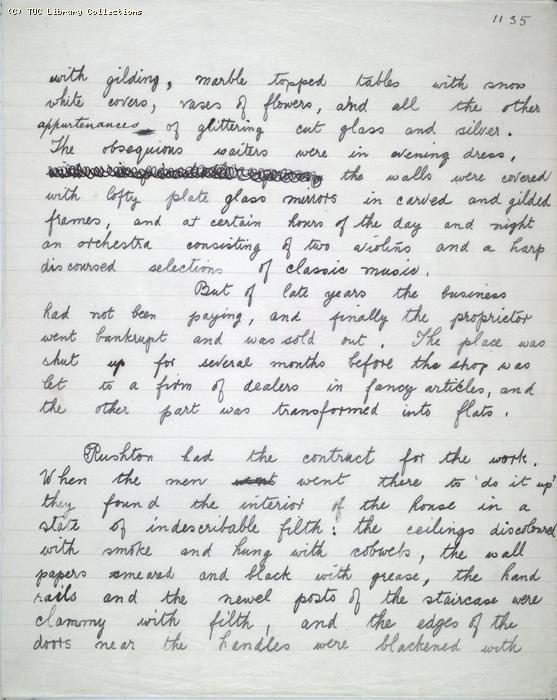 (C) TUC Library Collections
1135
with gilding, marble topped tables with snow
white covers, vases of flowers, and all the other
appurtenances of glittering cut glass and silver.
The obsequious waiters were in evening dress,
the walls were covered
with lofty plate glass mirrors in carved and gilded
frames, and at certain hours of the day and night
an orchestra consisting of two violins and a harp
discoursed selections of classic music.
But of late years the business
had not been paying, and finally the proprietor
went bankrupt and was sold out. The place was
shut up for several months before the shop was
let to a firm of dealers in fancy articles, and
the other part was transformed into flats.
Rushton had the contract for the work.
When the men went there to 'do it up'
they found the interior of the house in a
state of indescribable filth: the ceilings discoloured
with smoke and hung with cobwebs, the wall
papers smeared and black with grease, the hand
rails and the newel posts of the staircase were
clammy with filth, and the edges of the
doors near the handles were blackened with